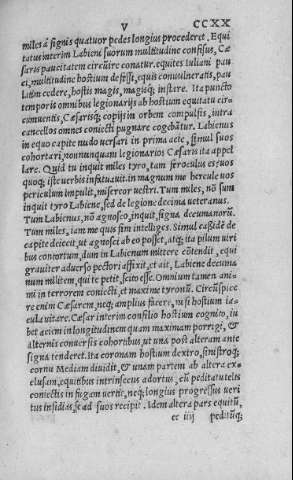 V CCXX
miles á signis quatuor pedes longius procederet. Equi
tatus interim Labieni suorum multitudine confisus, Cæ
saris paucitatem circuire conatur. equites Iuliani pau
ci, multitudine hostium defessi, equis conuulneratis, pau
latim cedere, hostis magis, magisq; instare. Ita puncto
temporis omnibus legionarijs ab hostium equitatu cir
cumuentis, Cæsarisq; copijs in orbem compulsis, intra
cancellos omnes coniecti pugnare cogebātur. Labienus
in equo capite nudo uersari in prima acie, simul suos
cohortari, nonnunquam legionarios Cæsaris ita appel
lare. Quid tu inquit miles tyro, tam feroculus es: uos
quoq; iste uerbis infatuauit. in magnum me hercule uos
periculum impulit, misereor uestri. Tum miles, nō sum
inquit tyro Labiene, sed de legione decima ueteranus.
Tum Labienus, nō agnosco, inquit, signa decumanorū.
Tum miles, iam me quis sim intelliges. Simul cassidē de
capite deiecit, ut agnosci ab eo posset, atq; ita pilum uiri
bus contortum, dum in Labienum mittere cōtendit, equi
grauiter aduerso pectori affixit, et ait, Labiene decima
num militem, qui te petit, scito esse. Omnium tamen ani
mi in terrorem coniecti, et maxime tyronū. Circūspice
re enim Cæsarem, neq; amplius facere, nisi hostium ia
cula uitare. Cæsar interim consilio hostium cognito, iu
bet aciem in longitudinem quam maximam porrigi, &
alternis conuersis cohortibus, ut una post alteram ante
signa tenderet. Ita coronam hostium dextro, sinistroq;
cornu mediam diuidit, & unam partem ab altera ex
clusam, equitibus intrinsecus adortus, cū peditatu telis
coniectis in fugam uertit, neq; longius progressus ueri
tus insidias, se ad suos recipit. Idem altera pars equitū,
ee iiij peditūq;